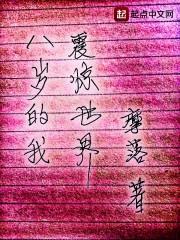 起点中文网
八岁的我
震惊世界
落
著